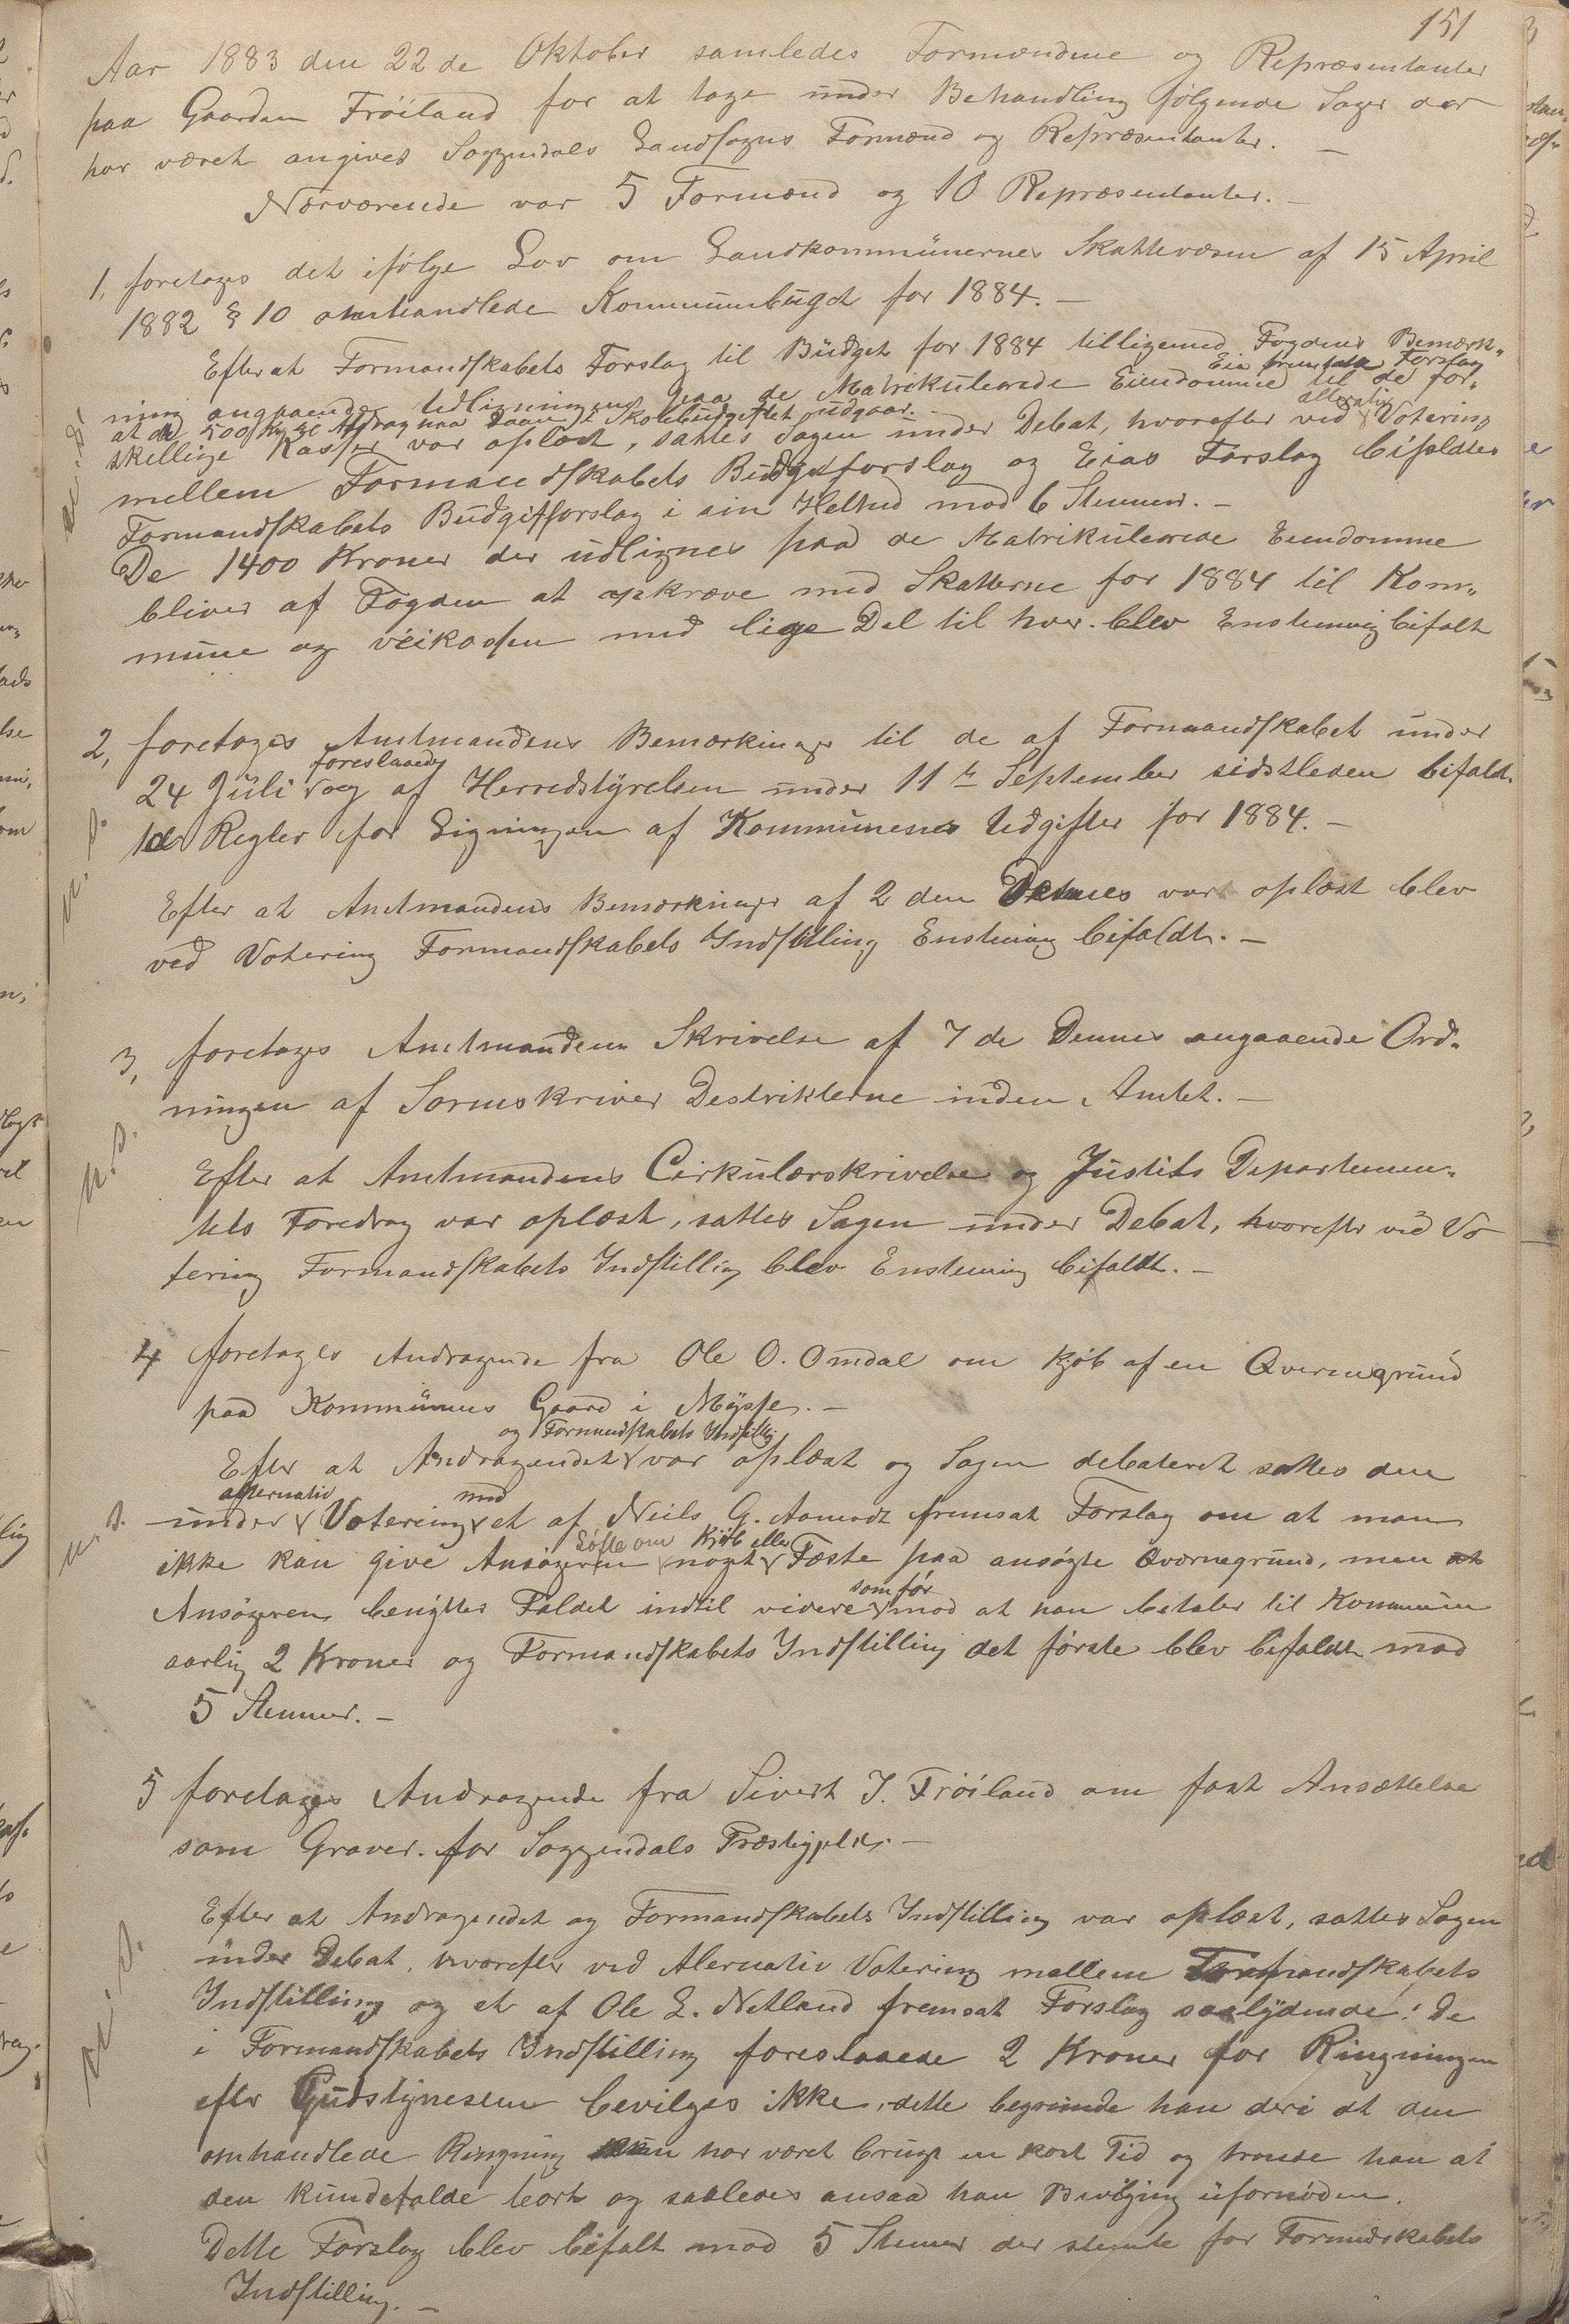 151
Aar 1883 den 22de Oktober samledes Formændene og Repræsentanter
paa Gaarden Fröiland for at tage under Behandling følgende Sager der
har været angives Soggendals Landsogns Formænd og Repræsentanter. —
Nærværende var 5 Formænd og 10 Repræsentanter. —
1, foretoges det ifølge Lov om Landkommunernes Skattevæsen af 15 April
1882 § 10 omhandlede Kommunbuget for 1884. —
Efter at Formandskabets Forslag til Budget for 1884 tilligemed Fogdens Bemærk-
ning angaaende Udligningen paa de Matrikulerede Eiendomme til de for-
Eia fremsatte Forslag
at de 500 Kr til Afdrag paa Laan i Skolebudgettet udgaar. —
skellige Kasser var oplæst, sattes Sagen under Debat, hvorefter ved alternativ Votering
mellem Formandskabets Budgetforslag og Eias Forslag bifaldtes
Formandskabets Budgetforslag i sin Helhed mod 6 Stemmer. —
De 1400 Kroner der udlignes paa de Matrikulerede Eiendomme
bliver af Fogden at opkræve med Skatterne for 1884 til Kom-
mune og veikassen med lige Del til hver. blev Enstemmig bifalt
2, foretoges Amtmandens Bemærkninger til de af Formandskabet under
24 Juli foreslaaede og af Herredstyrelsen under 11te September sidstleden bifald-
te Regler for Ligningen af Kommunenes Udgifter for 1884. —
Efter at Amtmandens Bemærkninger af 2den Dennes vart oplæst blev
ved Votering Formandskabets Indstilling Enstemig bifaldt. —
3, foretoges Amtmandens Skrivelse af 7de Dennes angaaende Ord-
ningen af Sorenskriver Destrikterne inden Amtet. —
Efter at Amtmandens Cirkulærskrivelse og Justits Departemen-
tets Foredrag var oplæst, sattes Sagen under Debat, hvorefter ved Vo
tering Formandskabets Indstilling blev Enstemig bifaldt. —
4 foretoges Andragende fra Ole O. Omdal om kjöb af en Qvernegrund
paa Kommunens Gaard i Mysse. —
Efter at Andragendet og Formandskabets Indstilling var oplæst og Sagen debateret sattes den
under alternativ Votering med et af Neils G. Aamodt fremsat Forslag om at man
ikke kan give Ansögeren Löfte om noget Kjöb eller Fæste paa ansögte Qværnegrund, men at
Ansögeren benytter Faldet indtil videre som för mod at han betaler til Kommunen
aarlig 2 Kroner og Formandskabets Indstilling det förste blev bifaldt mod
5 Stemmer. —
5 foretoges Andragende fra Sivert J. Fröiland om fast Ansættelse
som Graver for Soggendals Præstegjeld. —
Efter at Andragendet og Formandskabets Indstilling var oplæst, sattes Sagen
under Debat, hvorefter ved Alernativ Votering mellem Formandskabets
Indstilling og et af Ole L. Netland fremsat Forslag saalydende: De
i Formandskabets Indstilling foreslaaede 2 Kroner for Ringningen
efter Gudstjnesten bevilges ikke, dette begrunde han deri at den
omhandlede Ringning kun har været brugt en kort Tid og troede han at
den kunde falde bort og saaledes ansaa han Bevilging ufornöden.
Dette Forslag blev bifalt mod 5 Stemer der stemte for Formdskabets
Indstilling. —